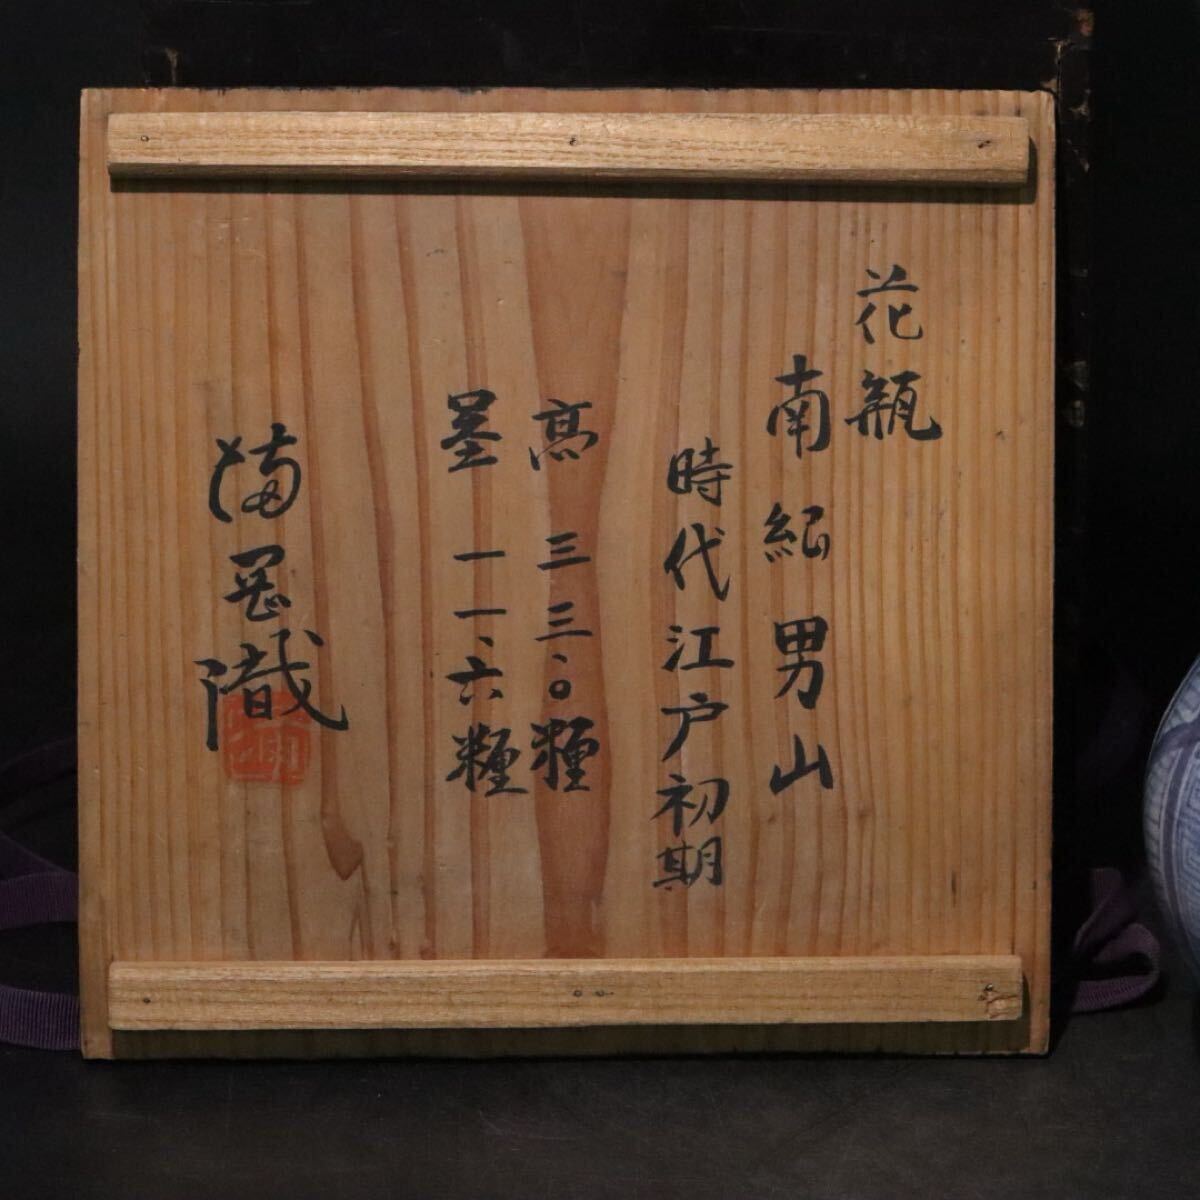 花瓶
南紀男山
時代江戸初期
高 三三、〇糎
一一、六糎
満岡識